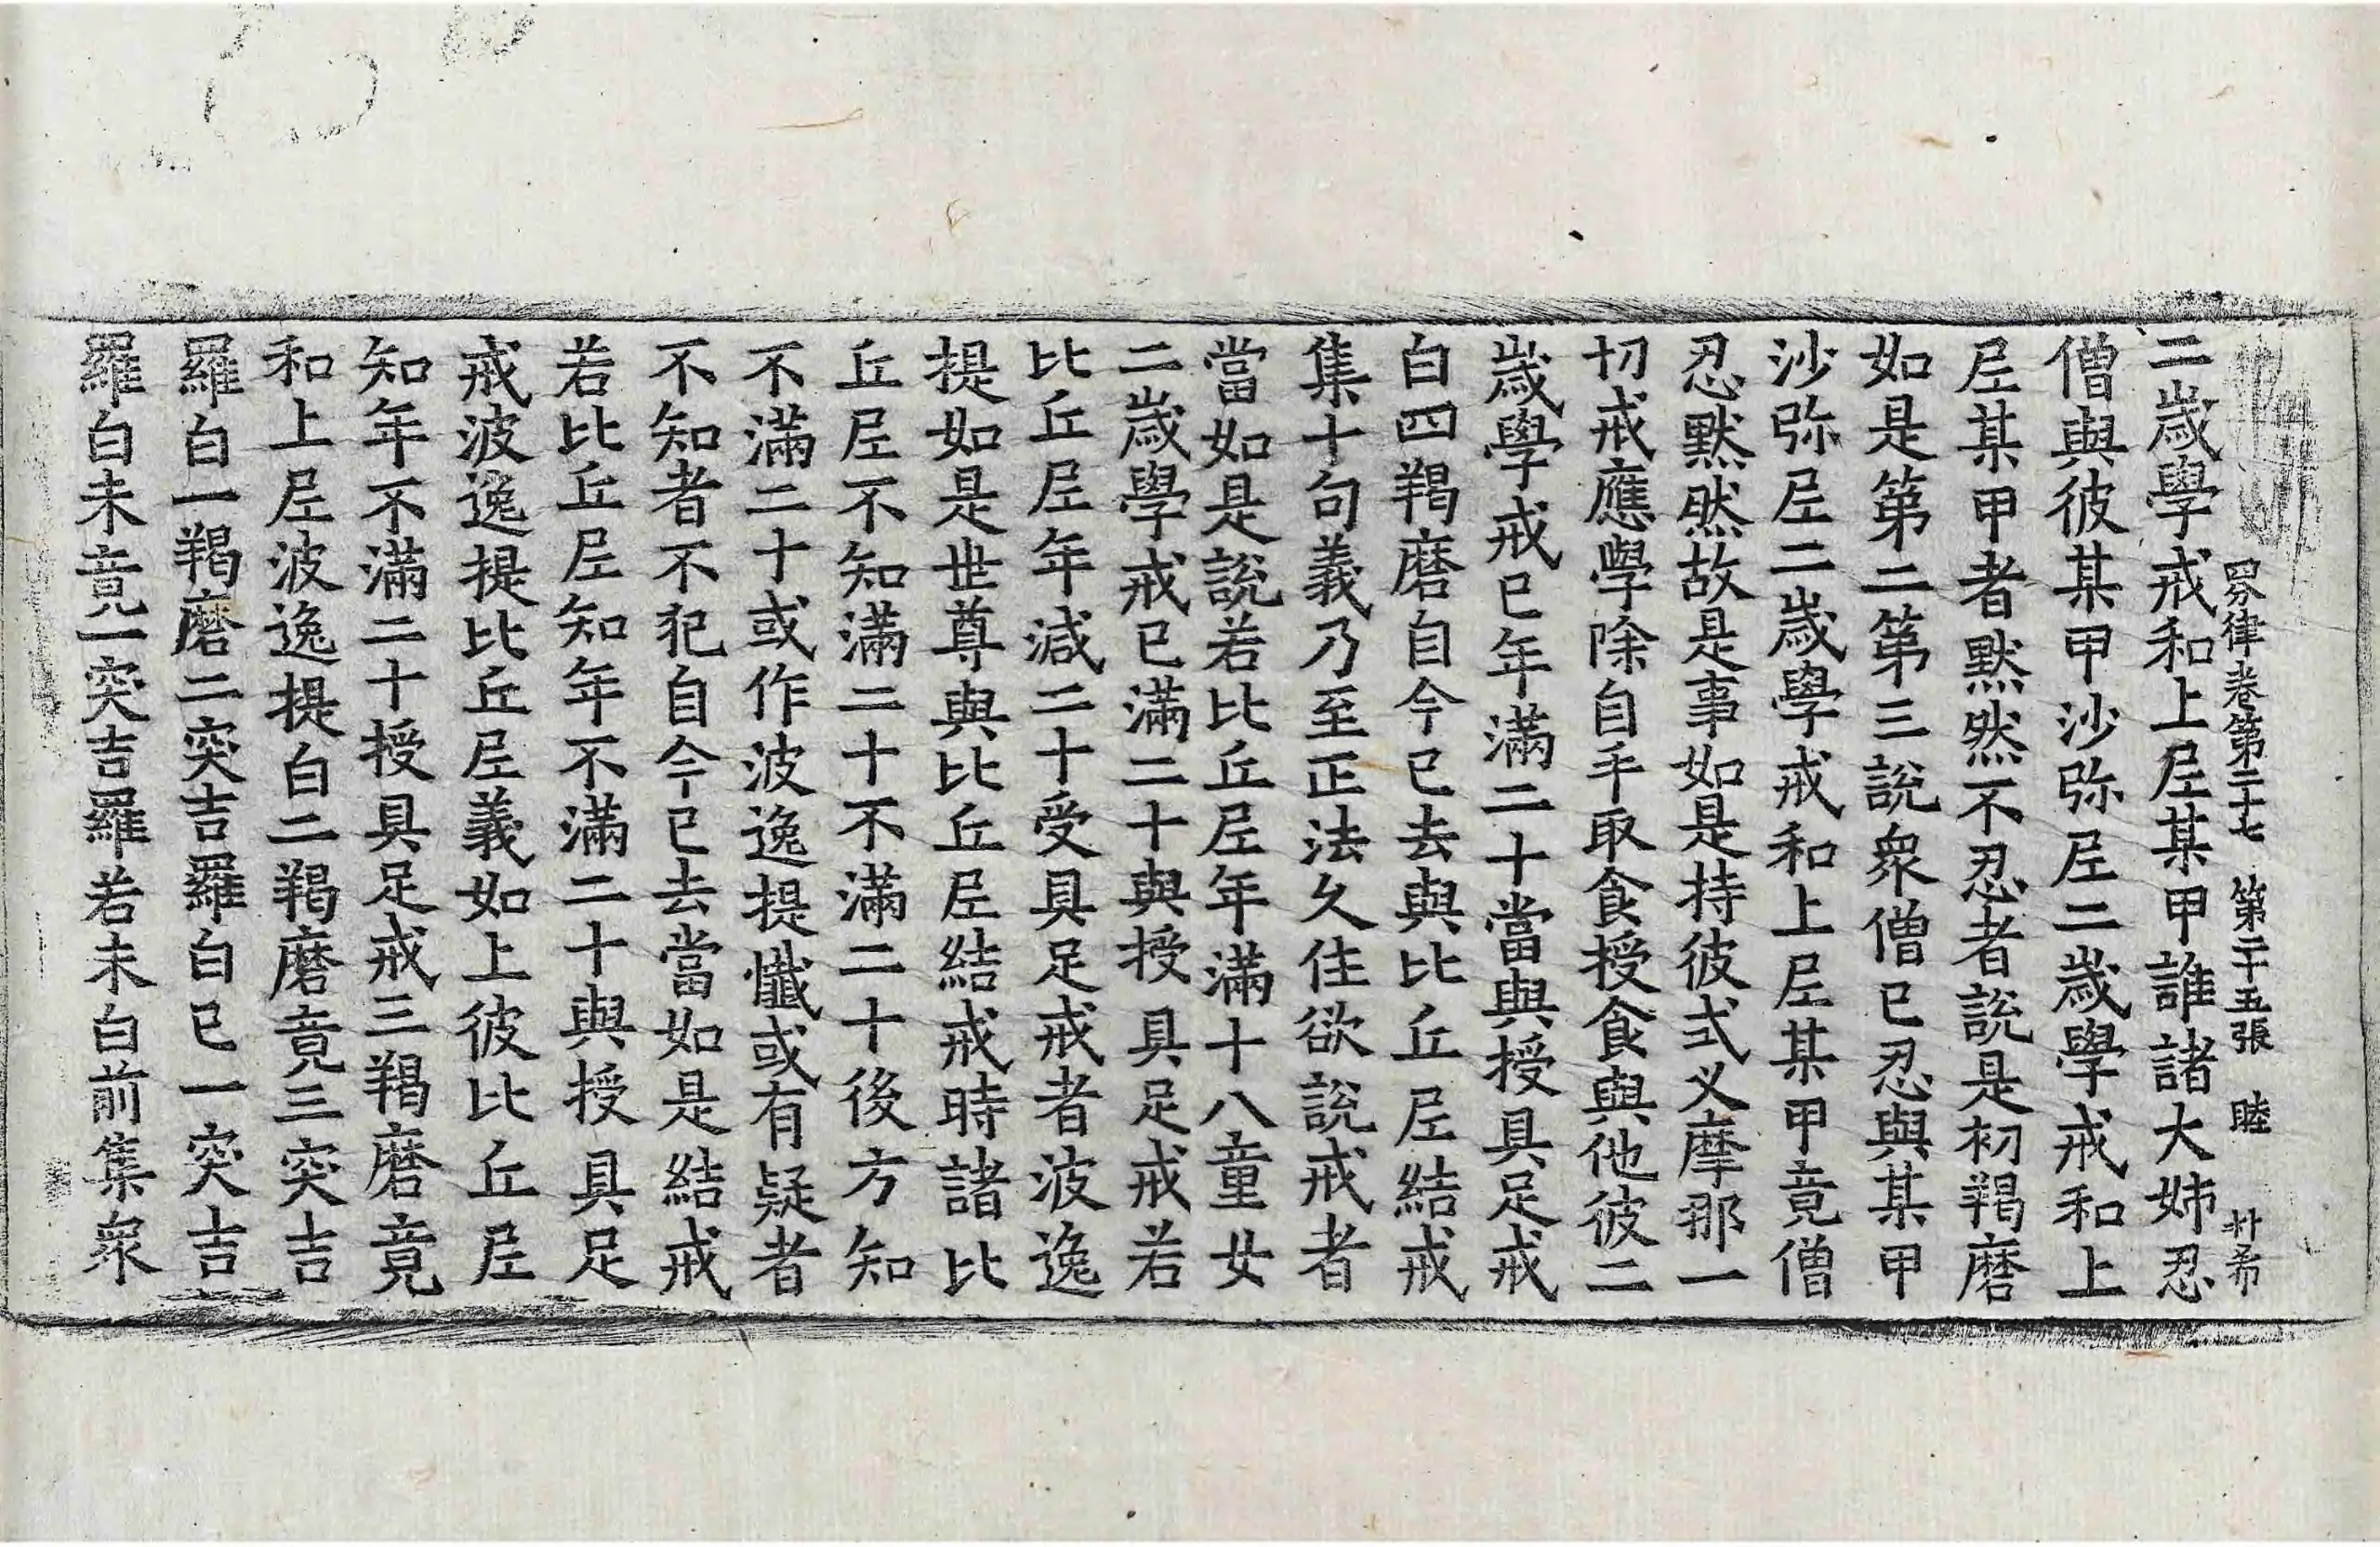 四分律卷第二十七 第二十五張 睦
二歲學戒和上尼某甲誰諸大姉忍
僧與彼某甲沙弥尼二歲學戒和上
尼某甲者默然不忍者說是初羯磨
如是第二第三說衆僧已忍與某甲
沙弥尼二歲學戒和上尼某甲竟僧
忍默然故是事如是持彼式叉摩那一
切戒應學除自手取食授食與他彼二
歲學戒已年滿二十當與授具足戒
白四羯磨自今已去與比丘尼結戒
集十句義乃至正法久住欲說戒者
當如是說若比丘尼年滿十八童女
二歲學戒已滿二十與授具足戒若
比丘尼年減二十受具足戒者波逸
提如是世尊與比丘尼結戒時諸比
丘尼不知滿二十不滿二十後方知
不滿二十或作波逸提懺或有疑者
不知者不犯自今已去當如是結戒
若比丘尼知年不滿二十與授具足
戒波逸提比丘尼義如上彼比丘尼
知年不滿二十授具足戒三羯磨竟
和上尼波逸提白二羯磨竟三突吉
羅白一羯磨二突吉羅白已一突吉
羅白未竟一突吉羅若未白前集衆